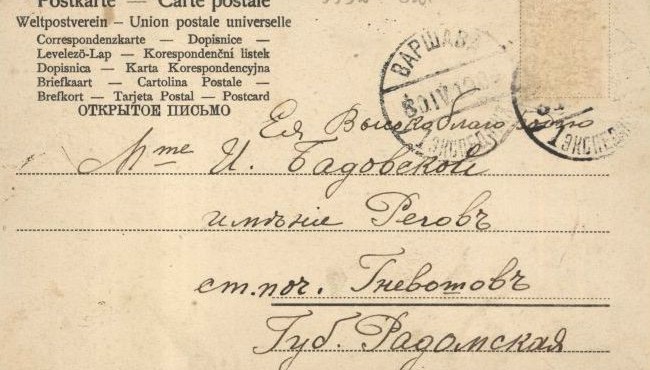 Postkarte — Carte postale
Weltpostverein — Union postale universelle
Correspondenzkarte — Dopisnice —
Levelező-Lap — Korespondenční listek
Dopisnica — Karta Korespondencyjna
Briefkaart — Cartolina Postale —
Brefkort — Tarjeta Postal — Postcard
ОТКРЫТОЕ ПИСЬМО
ВАРШАВА
ЭКСПЕД
Ея Высокоблагородію
Mme И. Бадовской
имѣніе Реговъ
ст. поч. Гневошовъ
Губ. Радомская